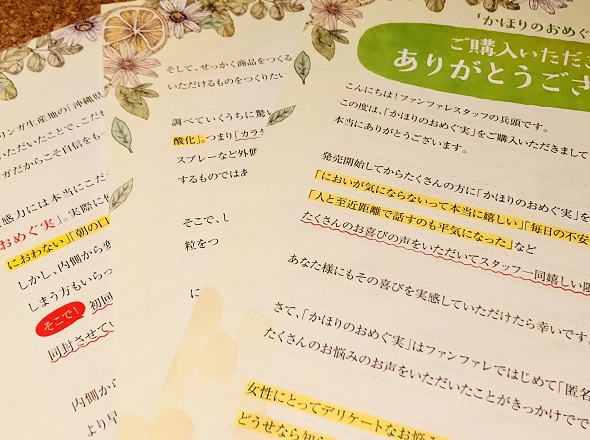 リンガ生産地の「沖縄県
いただいたことで、こだ
ガだからこそ自信をもっ
感力には本当にこだ
おめぐ実」。実際に
におわない」「朝の口
しかし、内側から変
しまう方もいらっ
そこで!
初回
同封させてい
内側から
より早
そして、せっかく商品をつくる
いただけるものをつくりたい
調べていくうちに驚
酸化」。つまり「カラ
スプレーなど外側
するものではあ
そこで、し
粒をつ
に
「かほりのおめぐ
ご購入いただき
ありがとうござ
こんにちは!ファンファレスタッフの兵頭です。
この度は、「かほりのおめぐ実」をご購入いただきまして
本当にありがとうございます。
発売開始してからたくさんの方に「かほりのおめぐ実」を
「においが気にならないって本当に嬉しい」「毎日の不安
「人と至近距離で話すのも平気になった」など
たくさんのお喜びの声をいただいてスタッフ一同嬉しい限
あなた様にもその喜びを実感していただけたら幸いです。
さて、「かほりのおめぐ実」はファンファレではじめて「匿名
たくさんのお悩みのお声をいただいたことがきっかけでで
女性にとってデリケートなお悩
どうせなら知